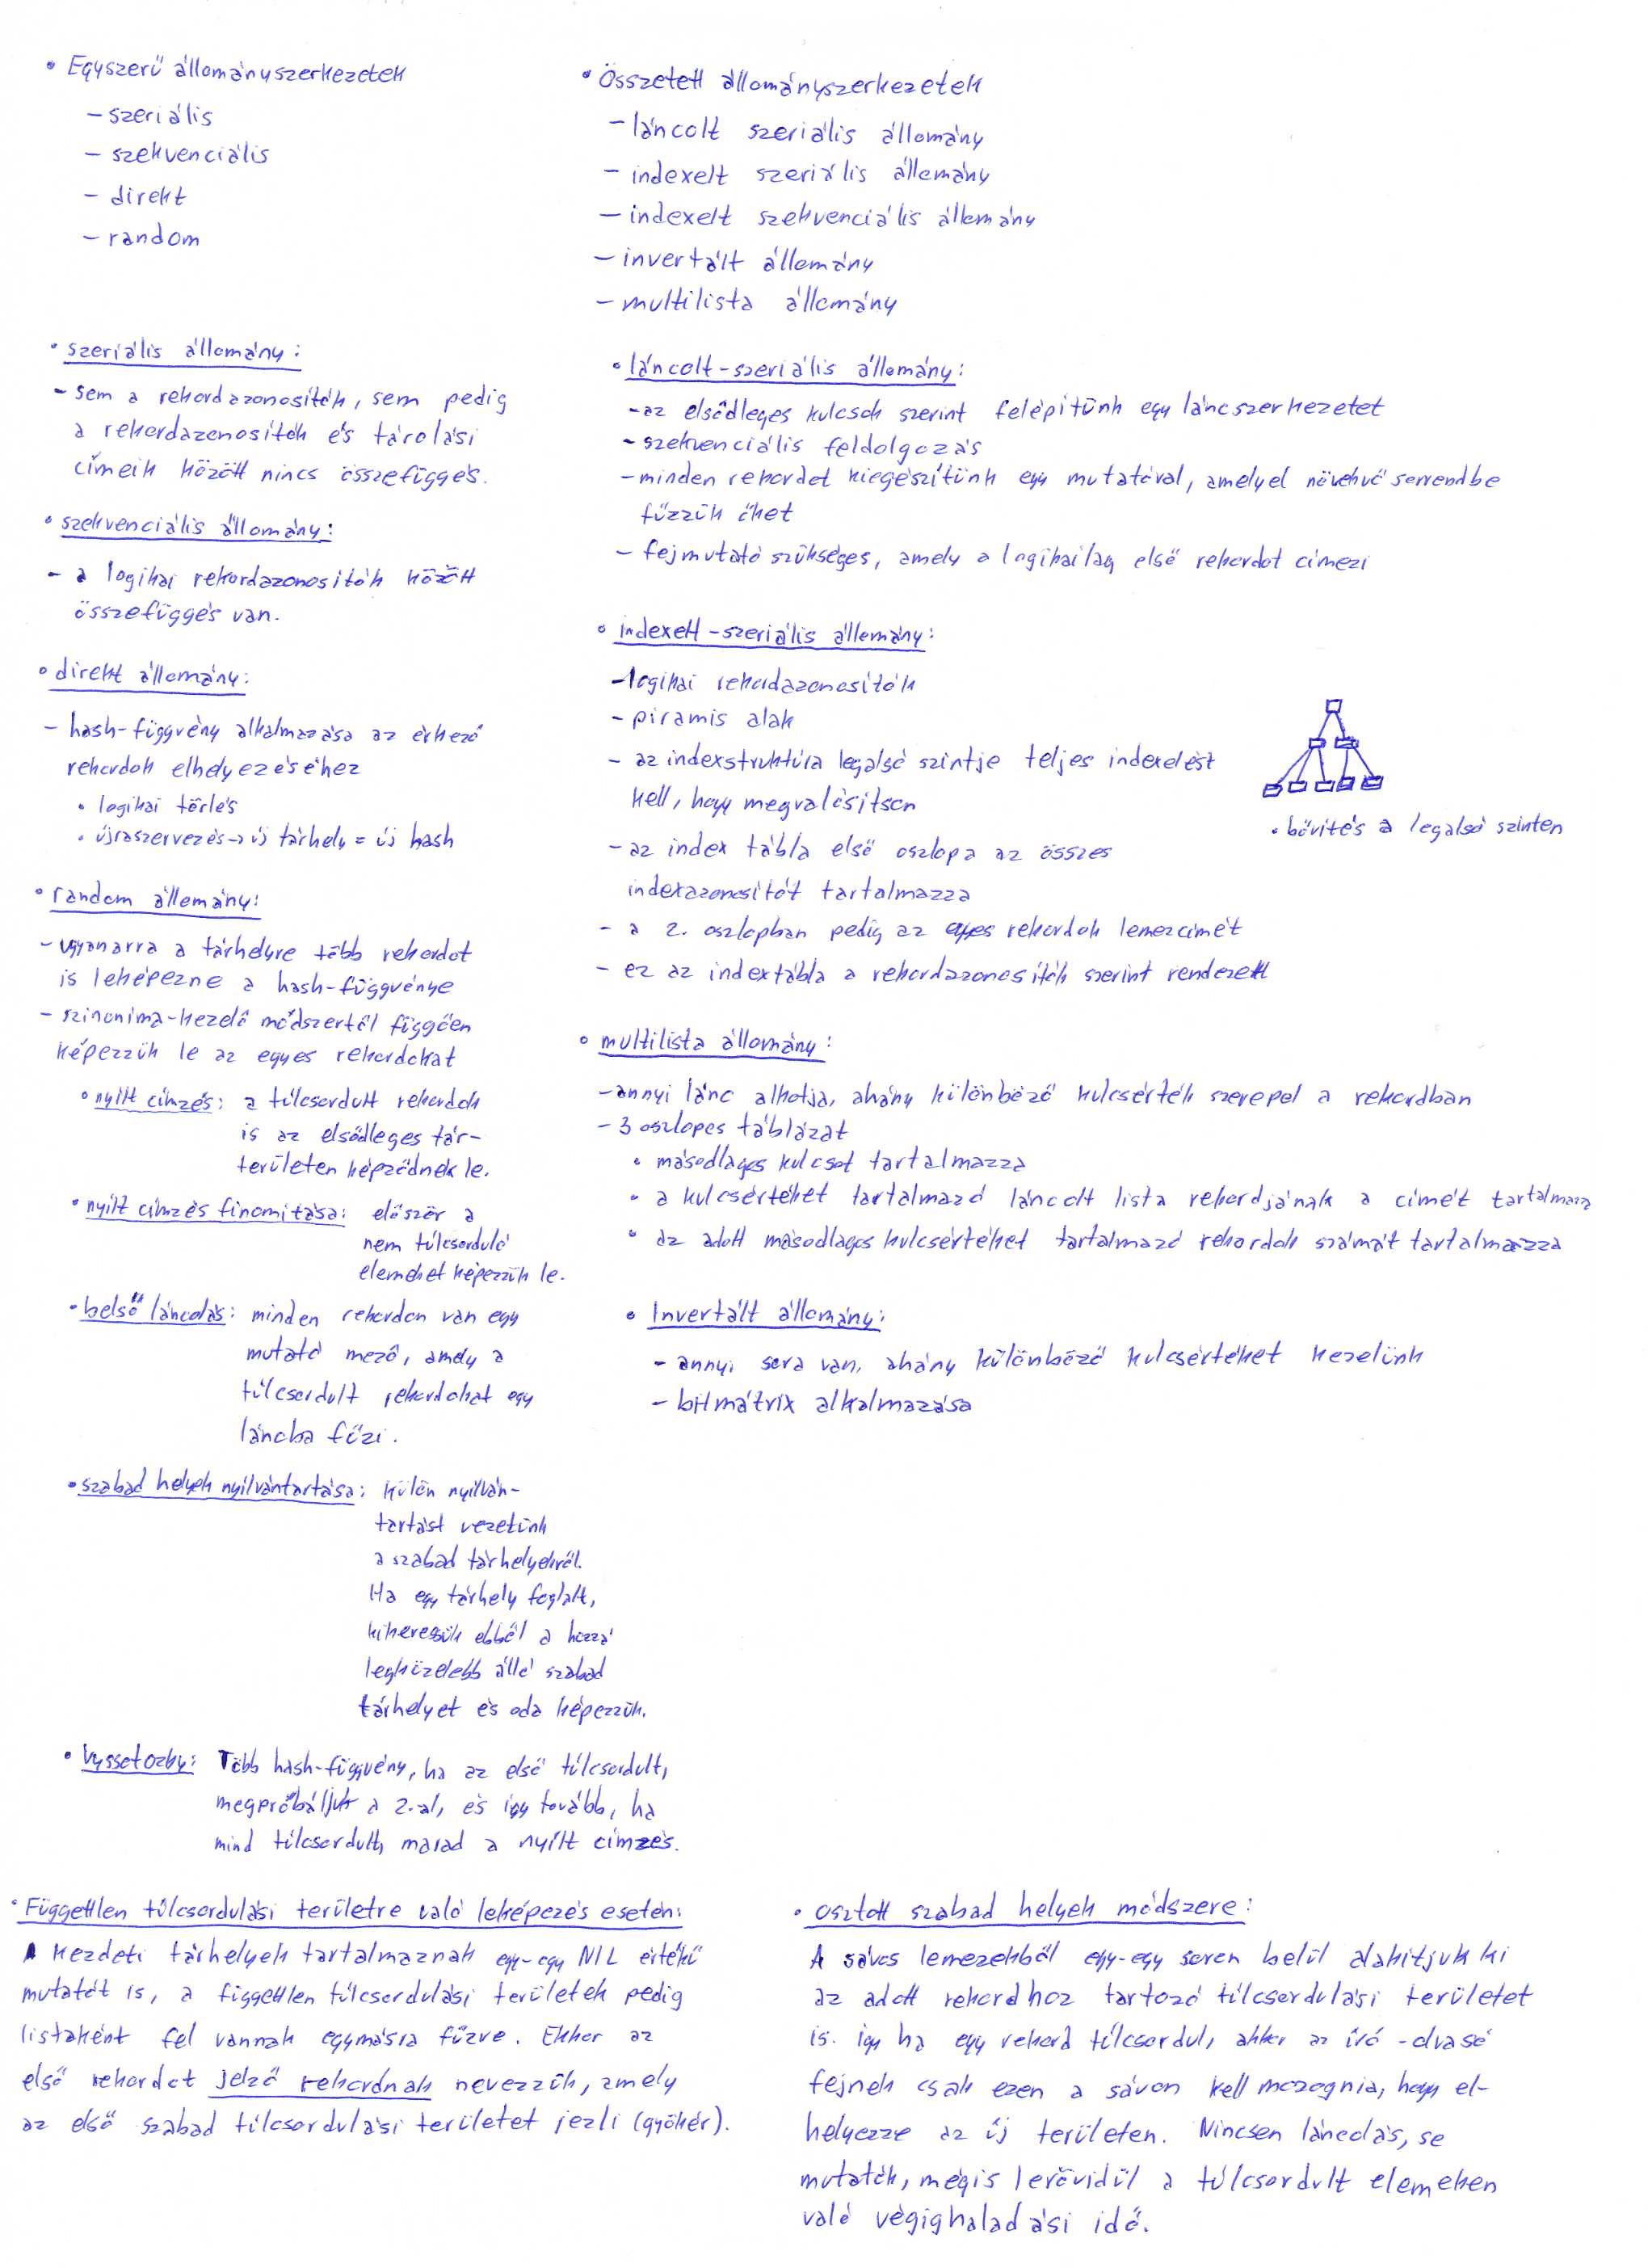 • Egyszerű állományszerkezetek
– szeriális
– szekvenciális
– direkt
– random
• szeriális állomány:
– sem a rekordazonosítók, sem pedig
a rekordazonosítók és tárolási
címeik között nincs összefüggés.
• szekvenciális állomány:
– a logikai rekordazonosítók között
összefüggés van.
• direkt állomány:
– hash-függvény alkalmazása az érkező
rekordok elhelyezéséhez
• logikai törlés
• újraszervezés → új tárhely = új hash
• random állomány:
– ugyanarra a tárhelyre több rekordot
is leképezne a hash-függvénye
– szinonima-kezelő módszertől függően
képezzük le az egyes rekordokat
• nyílt címzés: a túlcsordult rekordok
is az elsődleges tár-
területen képződnek le.
• nyílt címzés finomítása: először a
nem túlcsorduló
elemeket képezzük le.
• belső láncolás: minden rekordon van egy
mutató mező, amely a
túlcsordult rekordokat egy
láncba fűzi.
• szabad helyek nyilvántartása: külön nyilván-
tartást vezetünk
a szabad tárhelyekről.
Ha egy tárhely foglalt,
kikeressük ebből a hozzá
legközelebb álló szabad
tárhelyet és oda képezzük.
• Vyssotozky: Több hash-függvény, ha az első túlcsordult,
megpróbáljuk a 2.-al, és így tovább, ha
mind túlcsordult, marad a nyílt címzés.
• Összetett állományszerkezetek
– láncolt szeriális állomány
– indexelt szeriális állomány
– indexelt szekvenciális állomány
– invertált állomány
– multilista állomány
• láncolt-szeriális állomány:
– az elsődleges kulcsok szerint felépítünk egy láncszerkezetet
– szekvenciális feldolgozás
– minden rekordot kiegészítünk egy mutatóval, amelyel növekvő sorrendbe
fűzzük őket
– fejmutató szükséges, amely a logikailag első rekordot címezi
• indexelt-szeriális állomány:
– logikai rekordazonosítók
– piramis alak
– az indexstruktúra legalsó szintje teljes indexelést
kell, hogy megvalósítson
– az index tábla első oszlopa az összes
indexazonosítót tartalmazza
– a 2. oszlopban pedig az egyes rekordok lemezcímét
– ez az indextábla a rekordazonosítók szerint rendezett
• bővítés a legalsó szinten
• multilista állomány:
– annyi lánc alkotja, ahány különböző kulcsérték szerepel a rekordban
– 3 oszlopos táblázat
• másodlagos kulcsot tartalmazza
• a kulcsértéket tartalmazó láncolt lista rekordjának a címét tartalmazz
• az adott másodlagos kulcsértéket tartalmazó rekordok számát tartalmazza
• Invertált állomány:
– annyi sora van, ahány különböző kulcsértéket kezelünk
– bitmátrix alkalmazása
• Független túlcsordulási területre való leképezés esetén:
A kezdeti tárhelyek tartalmaznak egy-egy NIL értékű
mutatót is, a független túlcsordulási területek pedig
listaként fel vannak egymásra fűzve. Ekkor az
első rekordot jelző rekordnak nevezzük, amely
az első szabad túlcsordulási területet jezli (gyökér).
• osztott szabad helyek módszere:
A sávos lemezekből egy-egy soron belül alakítjuk ki
az adott rekordhoz tartozó túlcsordulási területet
is. így ha egy rekord túlcsordul, akkor az író-olvasó
fejnek csak ezen a sávon kell mozognia, hogy el-
helyezze az új területen. Nincsen láncolás, se
mutatók, mégis lerövidül a túlcsordult elemeken
való végighaladási idő.